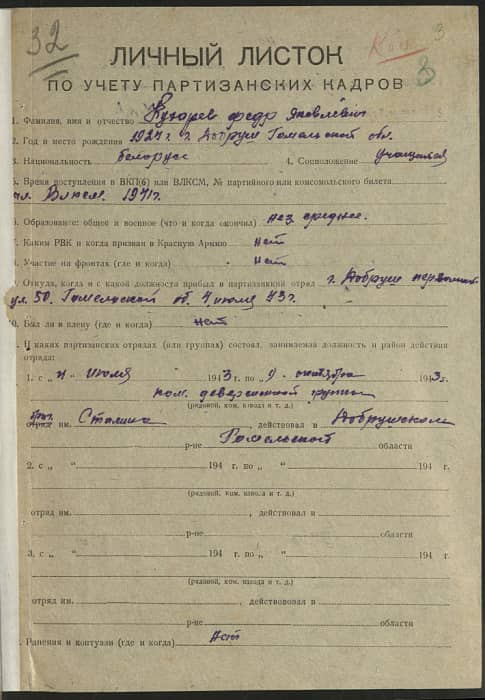 32
3
8
ЛИЧНЫЙ ЛИСТОК
ПО УЧЕТУ ПАРТИЗАНСКИХ КАДРОВ
1. Фамилия, имя и отчество Кухарев федр Яковлевич
2. Год и место рождения 1927 г. г. Добруш Гомельской обл.
3. Национальность белорусс 4. Соцположение учащийся
5. Время поступления в ВКП(б) или ВЛКСМ, № партийного или комсомольского билета
чл. Влксм. 1941г.
6. Образование: общее и военное (что и когда окончил) нез среднее.
7. Каким РВК и когда призван в Красную Армию нет
8. Участие на фронтах (где и когда) нет
9. Откуда, когда и с какой должности прибыл в партизанский отряд г. Добруш
ул. 50. Гомельской об. 4 июля 43 г.
10. Был ли в плену (где и когда) нет
. В каких партизанских отрядах (или группах) состоял, занимаемая должность и район действия
отряда:
1. с „4 “ июля 1943 г. по „9. октября 1943г.
ком. диверсионной группы
(рядовой, ком. взвода и т. д.)
им. Сталина действовал в Добрушском
р-не Гомельской области
2. с „ “ 194 г. по „ “ 194 г.
(рядовой, ком. взвода и т. д.)
отряд им. , действовал в
р-не области
3. с „ “ 194 г. по „ “ 194 г.
(рядовой, ком. взвода и т. д.)
отряд им. , действовал в
р-не области
. Ранения и контузии (где и когда) нет